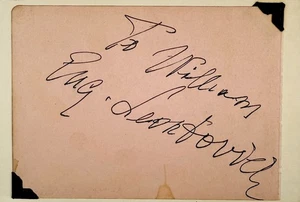 To William
Eug. Leontovich